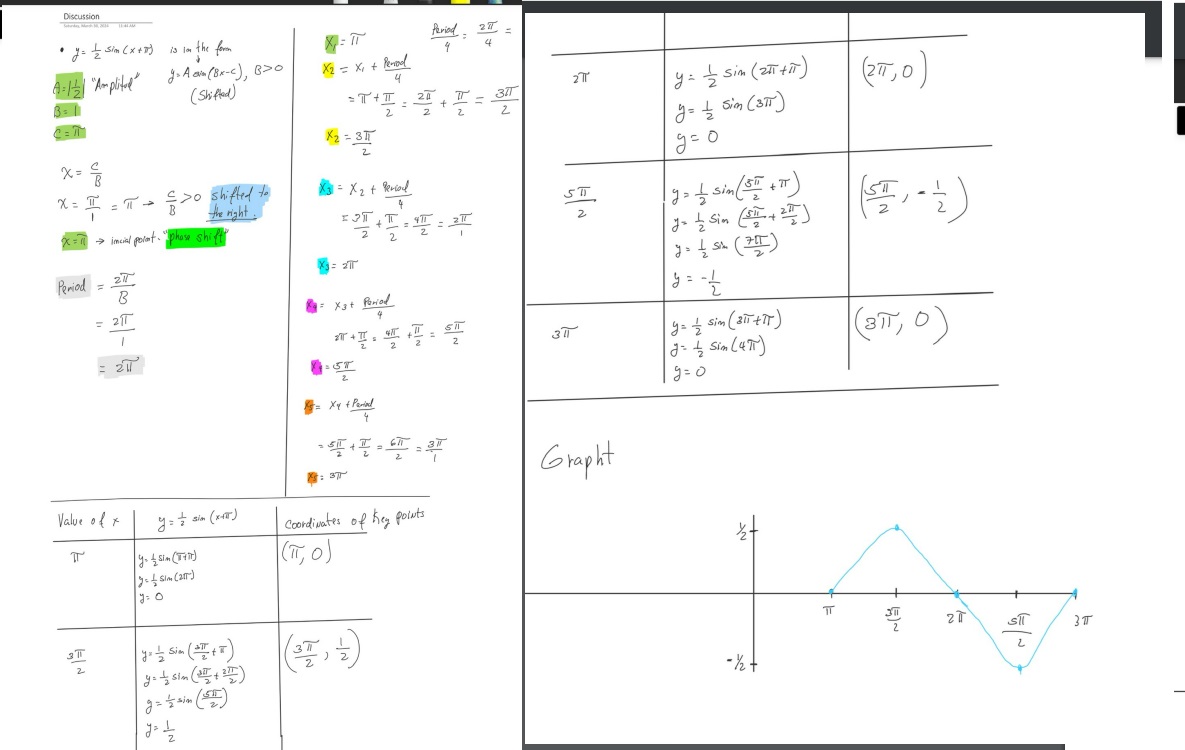 Discussion
Saturday, March 30, 2024 11:44 AM
• y = 1/2 sin(x+π) is in the form
y = A sin(Bx-c), B>0
(Shifted)
A=|1/2| "Amplitud"
B = 1
C = π
x = C/B
x = π/1 = π → C/B >0 shifted to the right.
x = π → inicial point. "phase shift"
Period = 2π/B
= 2π/1
= 2π
x₁ = π Period/4 = 2π/4 =
x₂ = x₁ + Period/4
= π + π/2 = 2π/2 + π/2 = 3π/2
x₂ = 3π/2
x₃ = x₂ + Period/4
= 3π/2 + π/2 = 4π/2 = 2π/1
x₃ = 2π
x₄ = x₃ + Period/4
2π + π/2 = 4π/2 + π/2 = 5π/2
x₄ = 5π/2
x₅ = x₄ + Period/4
= 5π/2 + π/2 = 6π/2 = 3π/1
x₅ = 3π
Value of x y = 1/2 sin(x+π) coordinates of key points
π
y = 1/2 sin(π+π)
y = 1/2 sin(2π)
y = 0
(π, 0)
3π/2
y = 1/2 sin(3π/2 + π)
y = 1/2 sin(3π/2 + 2π/2)
y = 1/2 sin(5π/2)
y = 1/2
(3π/2, 1/2)
2π
y = 1/2 sin(2π+π)
y = 1/2 sin(3π)
y = 0
(2π, 0)
5π/2
y = 1/2 sin(5π/2 + π)
y = 1/2 sin(5π/2 + 2π/2)
y = 1/2 sin(7π/2)
y = -1/2
(5π/2, -1/2)
3π
y = 1/2 sin(3π+π)
y = 1/2 sin(4π)
y = 0
(3π, 0)
Grapht
1/2
π 3π/2 2π 5π/2 3π
-1/2